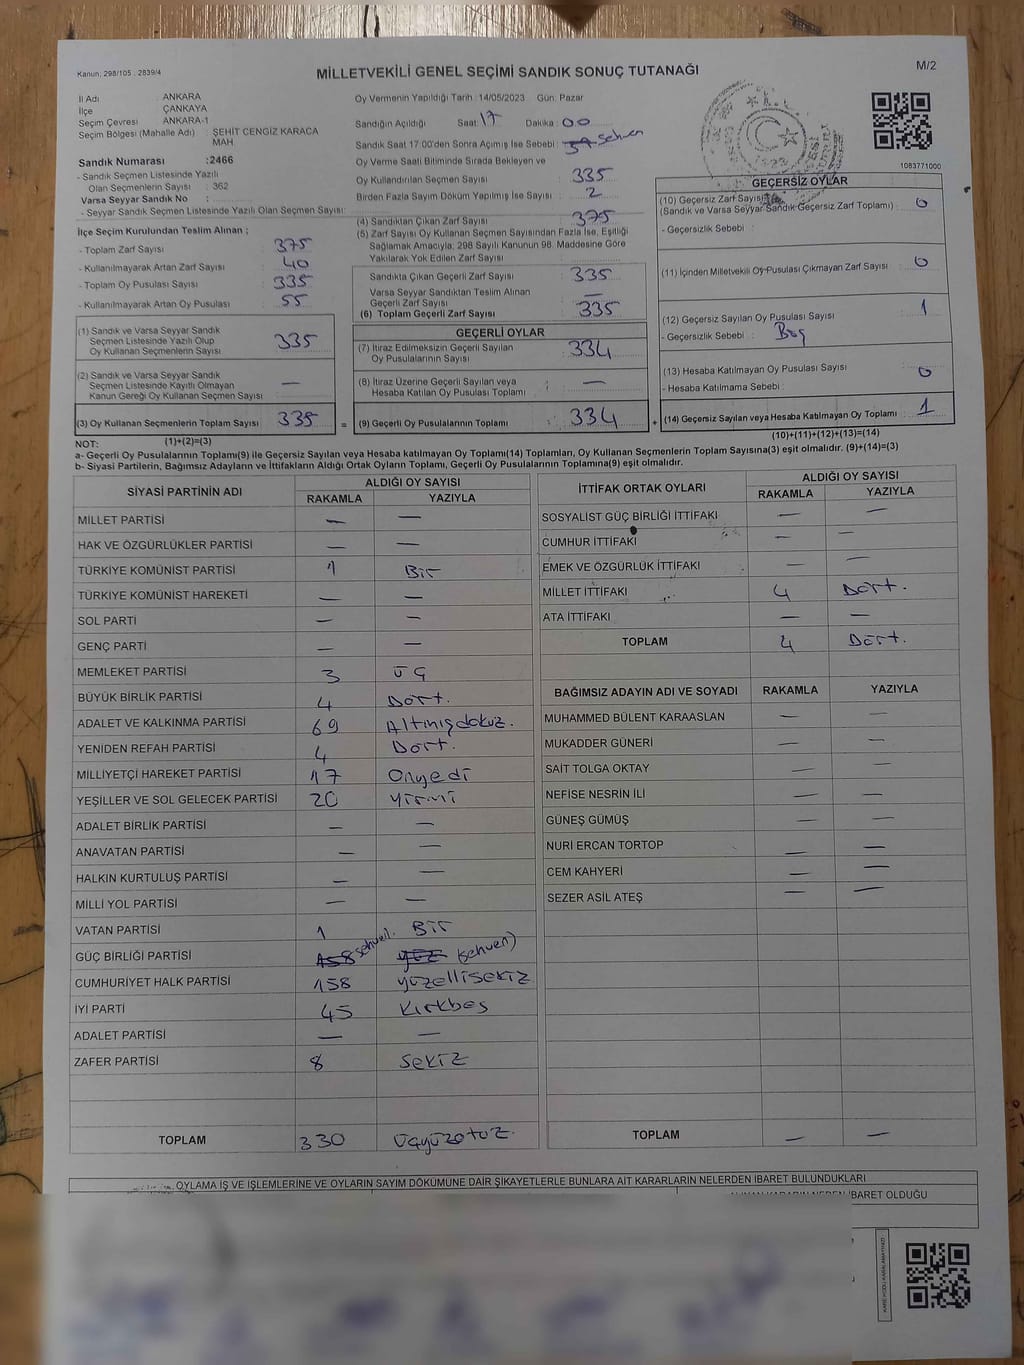 Kanun: 298/105 . 2839/4
MİLLETVEKİLİ GENEL SEÇİMİ SANDIK SONUÇ TUTANAĞI
M/2
İl Adı : ANKARA
İlçe : ÇANKAYA
Seçim Çevresi : ANKARA-1
Seçim Bölgesi (Mahalle Adı) : ŞEHİT CENGİZ KARACA MAH.
Sandık Numarası :2466
- Sandık Seçmen Listesinde Yazılı
Olan Seçmenlerin Sayısı : 362
Varsa Seyyar Sandık No :
- Seyyar Sandık Seçmen Listesinde Yazılı Olan Seçmen Sayısı:
İlçe Seçim Kurulundan Teslim Alınan ;
- Toplam Zarf Sayısı : 375
- Kullanılmayarak Artan Zarf Sayısı : 40
- Toplam Oy Pusulası Sayısı : 335
- Kullanılmayarak Artan Oy Pusulası : 55
(1) Sandık ve Varsa Seyyar Sandık
Seçmen Listesinde Yazılı Olup
Oy Kullanan Seçmenlerin Sayısı : 335
(2) Sandık ve Varsa Seyyar Sandık
Seçmen Listesinde Kayıtlı Olmayan
Kanun Gereği Oy Kullanan Seçmen Sayısı : —
(3) Oy Kullanan Seçmenlerin Toplam Sayısı : 335 =
Oy Vermenin Yapıldığı Tarih : 14/05/2023 Gün: Pazar
Sandığın Açıldığı Saat: 17 Dakika : 00
Sandık Saat 17.00'den Sonra Açımış İse Sebebi : sehven
Oy Verme Saati Bitiminde Sırada Bekleyen ve
Oy Kullandırılan Seçmen Sayısı : 335
Birden Fazla Sayım Döküm Yapılmış İse Sayısı : 2
(4) Sandıktan Çıkan Zarf Sayısı : 375
(5) Zarf Sayısı Oy Kullanan Seçmen Sayısından Fazla İse, Eşitliği
Sağlamak Amacıyla; 298 Sayılı Kanunun 98. Maddesine Göre
Yakılarak Yok Edilen Zarf Sayısı :
Sandıkta Çıkan Geçerli Zarf Sayısı : 335
Varsa Seyyar Sandıktan Teslim Alınan
Geçerli Zarf Sayısı : —
(6) Toplam Geçerli Zarf Sayısı : 335
GEÇERLİ OYLAR
(7) İtiraz Edilmeksizin Geçerli Sayılan
Oy Pusulalarının Sayısı : 334
(8) İtiraz Üzerine Geçerli Sayılan veya
Hesaba Katılan Oy Pusulası Toplamı : —
(9) Geçerli Oy Pusulalarının Toplamı : 334 +
1083771000
GEÇERSİZ OYLAR
(10) Geçersiz Zarf Sayısı : 0
(Sandık ve Varsa Seyyar Sandık Geçersiz Zarf Toplamı)
- Geçersizlik Sebebi :
(11) İçinden Milletvekili Oy Pusulası Çıkmayan Zarf Sayısı : 0
(12) Geçersiz Sayılan Oy Pusulası Sayısı : 1
- Geçersizlik Sebebi : Boş
(13) Hesaba Katılmayan Oy Pusulası Sayısı : 0
- Hesaba Katılmama Sebebi :
(14) Geçersiz Sayılan veya Hesaba Katılmayan Oy Toplamı : 1
NOT: (1)+(2)=(3)
(10)+(11)+(12)+(13)=(14)
a- Geçerli Oy Pusulasının Toplamı(9) ile Geçersiz Sayılan veya Hesaba katılmayan Oy Toplamı(14) Toplamları, Oy Kullanan Seçmenlerin Toplam Sayısına(3) eşit olmalıdır. (9)+(14)=(3)
b- Siyasi Partilerin, Bağımsız Adayların ve İttifakların Aldığı Ortak Oyların Toplamı, Geçerli Oy Pusulalarının Toplamına(9) eşit olmalıdır.
SİYASİ PARTİNİN ADI ALDIĞI OY SAYISI
RAKAMLA YAZIYLA
MİLLET PARTİSİ — —
HAK VE ÖZGÜRLÜKLER PARTİSİ — —
TÜRKİYE KOMÜNİST PARTİSİ 1 Bir
TÜRKİYE KOMÜNİST HAREKETİ — —
SOL PARTİ — —
GENÇ PARTİ — —
MEMLEKET PARTİSİ 3 ÜÇ
BÜYÜK BİRLİK PARTİSİ 4 Dört.
ADALET VE KALKINMA PARTİSİ 69 Altmışdokuz.
YENİDEN REFAH PARTİSİ 4 Dört.
MİLLİYETÇİ HAREKET PARTİSİ 17 Onyedi
YEŞİLLER VE SOL GELECEK PARTİSİ 20 Yirmi
ADALET BİRLİK PARTİSİ — —
ANAVATAN PARTİSİ — —
HALKIN KURTULUŞ PARTİSİ — —
MİLLİ YOL PARTİSİ — —
VATAN PARTİSİ 1 Bir
GÜÇ BİRLİĞİ PARTİSİ 158 sehven. yüz (sehven)
CUMHURİYET HALK PARTİSİ 158 yüzellisekiz
İYİ PARTİ 45 Kırkbeş
ADALET PARTİSİ — —
ZAFER PARTİSİ 8 Sekiz
TOPLAM 330 Üçyüzotuz.
İTTİFAK ORTAK OYLARI ALDIĞI OY SAYISI
RAKAMLA YAZIYLA
SOSYALİST GÜÇ BİRLİĞİ İTTİFAKI — —
CUMHUR İTTİFAKI — —
EMEK VE ÖZGÜRLÜK İTTİFAKI — —
MİLLET İTTİFAKI 4 Dört.
ATA İTTİFAKI — —
TOPLAM 4 Dört.
BAĞIMSIZ ADAYIN ADI VE SOYADI RAKAMLA YAZIYLA
MUHAMMED BÜLENT KARAASLAN — —
MUKADDER GÜNERİ — —
SAİT TOLGA OKTAY — —
NEFİSE NESRİN İLİ — —
GÜNEŞ GÜMÜŞ — —
NURİ ERCAN TORTOP — —
CEM KAHYERİ — —
SEZER ASİL ATEŞ — —
TOPLAM — —
OYLAMA İŞ VE İŞLEMLERİNE VE OYLARIN SAYIM DÖKÜMÜNE DAİR ŞİKAYETLERLE BUNLARA AİT KARARLARIN NELERDEN İBARET BULUNDUKLARI
İBARET OLDUĞU